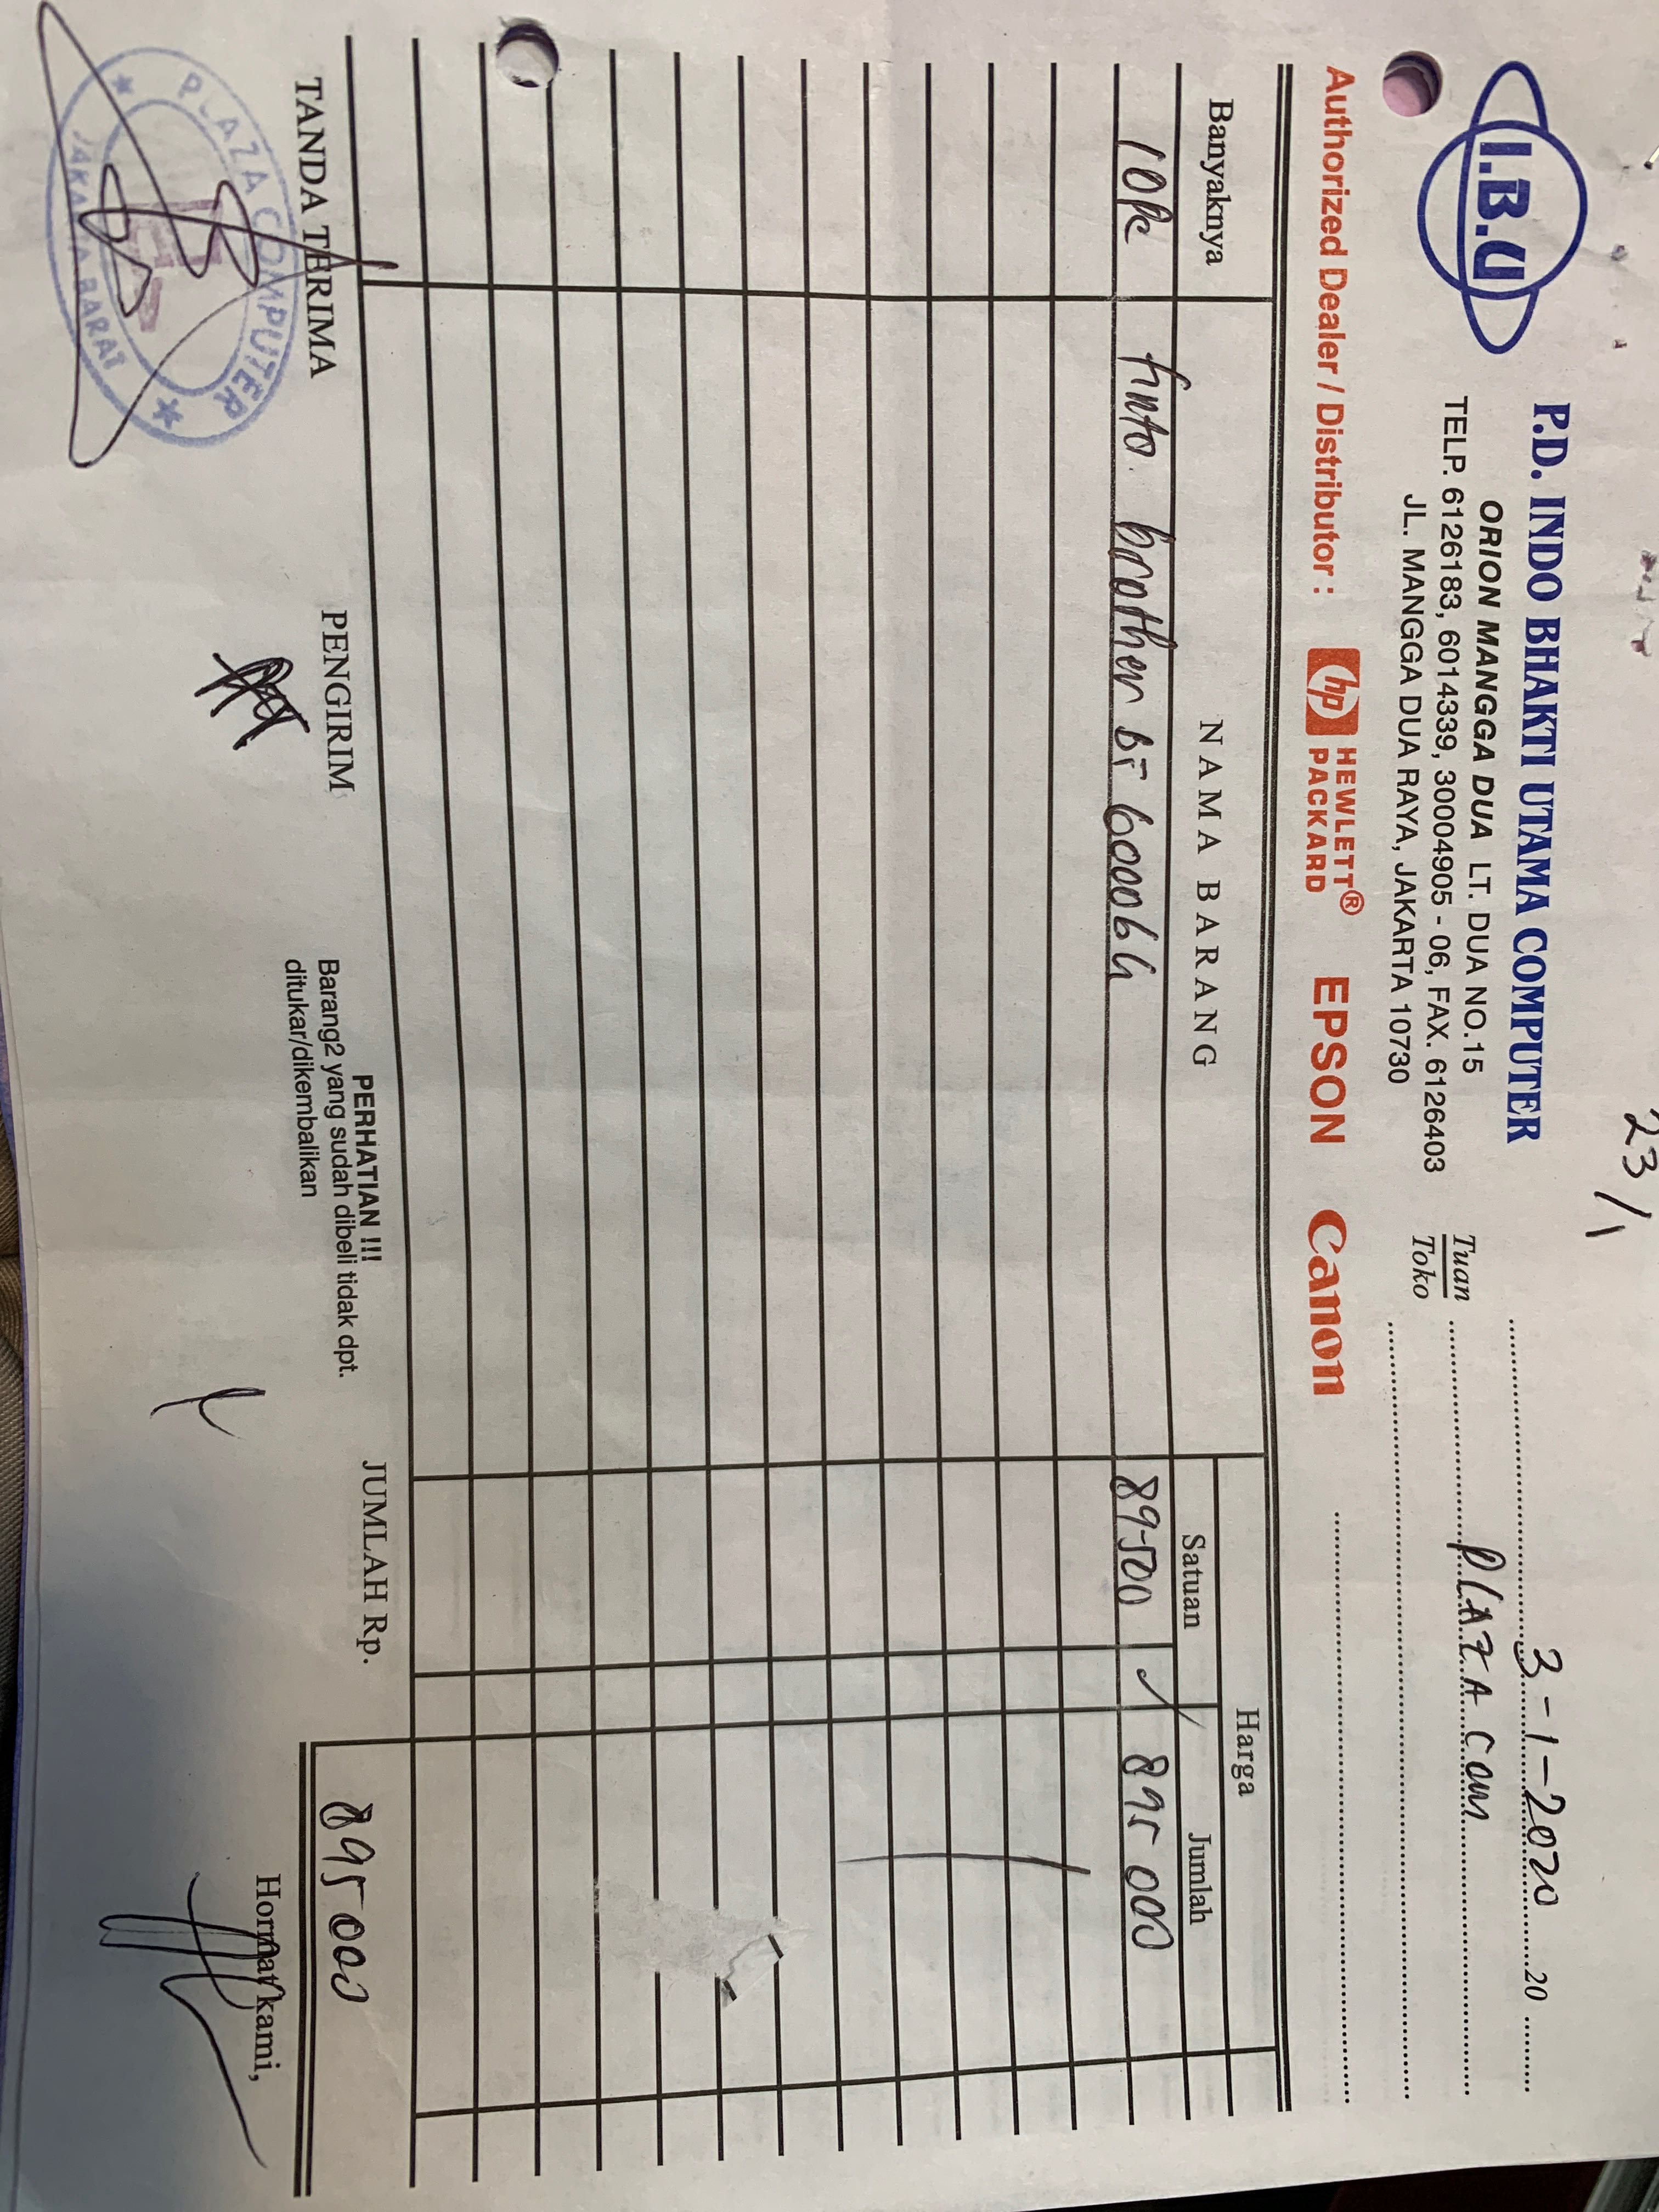 23/1
I.B.U
P.D. INDO BHAKTI UTAMA COMPUTER
ORION MANGGA DUA LT. DUA NO.15
TELP. 6126183, 6014339, 30004905 - 06, FAX. 6126403
JL. MANGGA DUA RAYA, JAKARTA 10730
3-1-2020 20
Tuan PLAZA com
Toko
Authorized Dealer / Distributor : hp HEWLETT® PACKARD EPSON Canon
Banyaknya NAMA BARANG Harga
Satuan Jumlah
10 tinta brother BT 6000 89500 895 000
TANDA TERIMA PENGIRIM JUMLAH Rp. 895 000
PERHATIAN !!!
Barang2 yang sudah dibeli tidak dpt.
ditukar/dikembalikan
Hormat kami,
PLAZA COMPUTER
JAKARTA BARAT